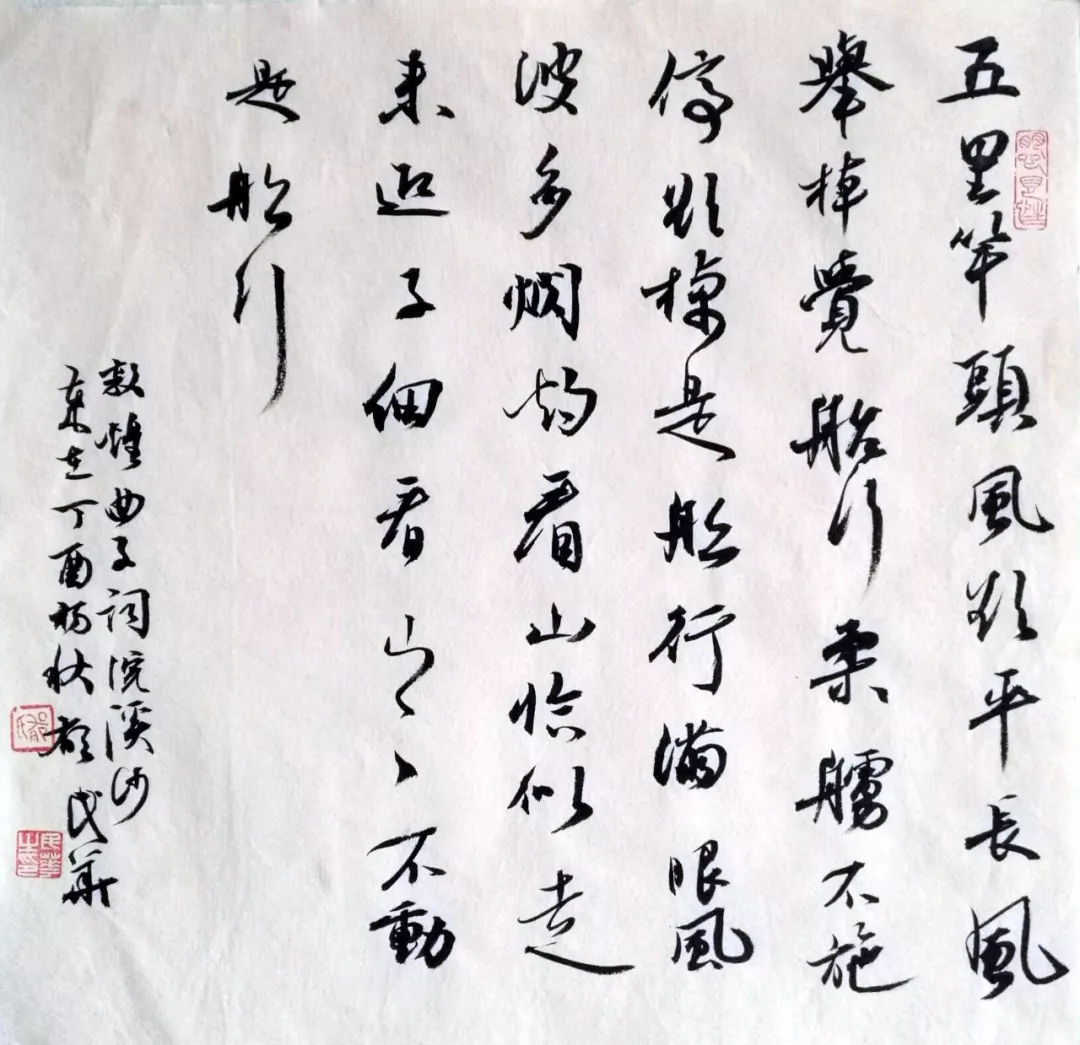 五里竿頭風欲平長風
舉棹覺船行柔艣不施
停欲棹是船行滿眼風
波多灼看山恰似走
來迎子細看山〻不動
是船行
敦煌曲子詞浣溪沙
丁酉初秋民華
民華之印